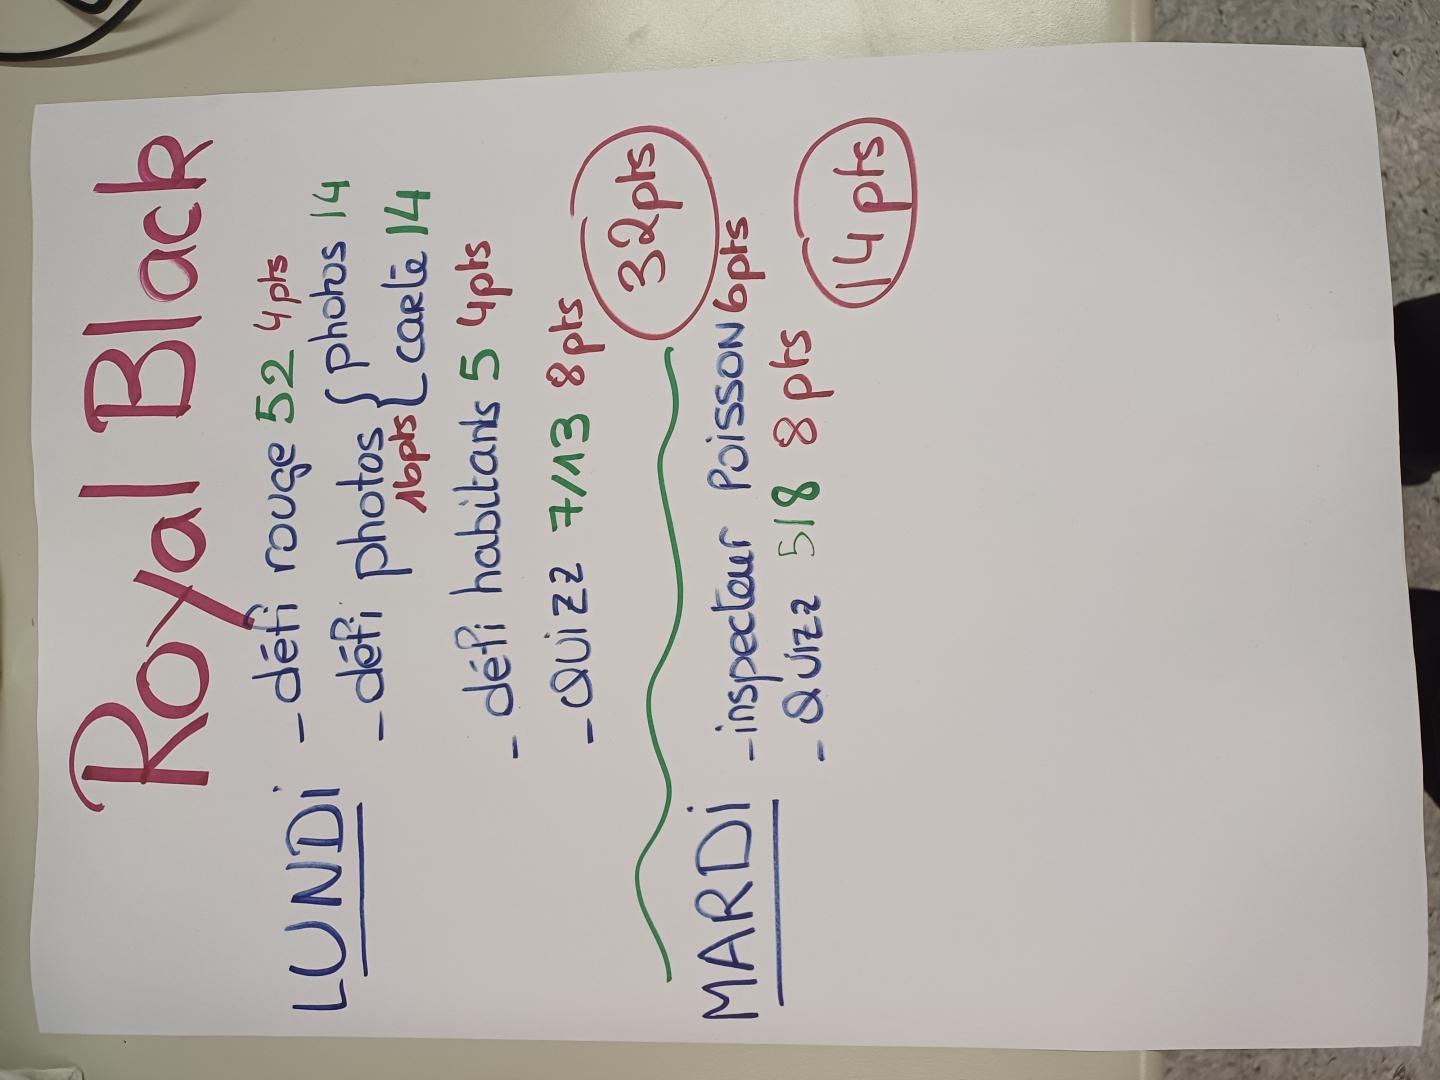 Royal Black
LUNDi
- défi rouge 52 4pts
- défi photos { photos 14
16pts { carte 14
- défi habitants 5 4pts
- QUIZZ 7/13 8pts
32pts
MARDi
- inspecteur POISSON 6pts
- QUIZZ 518 8pts
14pts